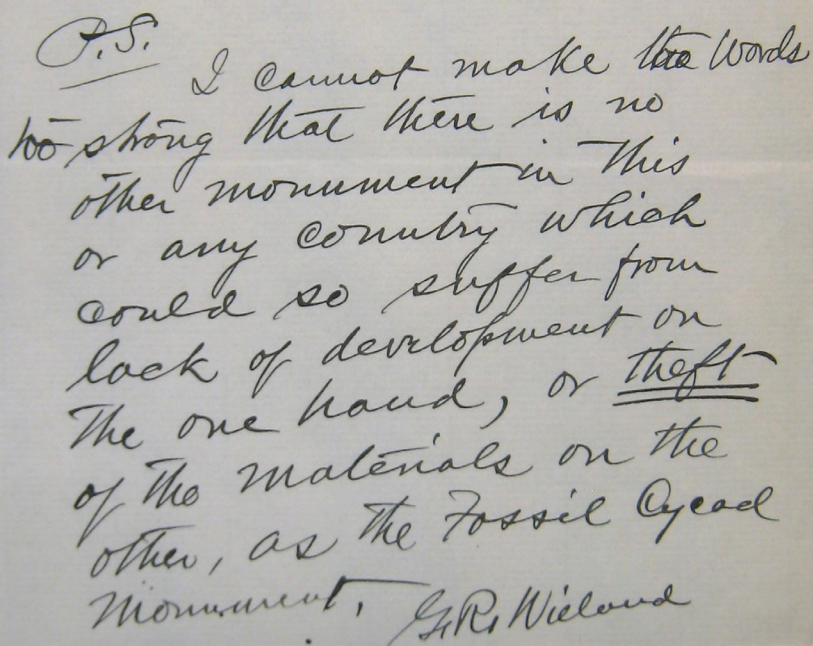 P.S.
I cannot make the words
too strong that there is no
other monument in this
or any country which
could so suffer from
lack of development on
the one hand, or theft
of the materials on the
other, as the Fossil Cycad
Monument.
G.R. Wieland